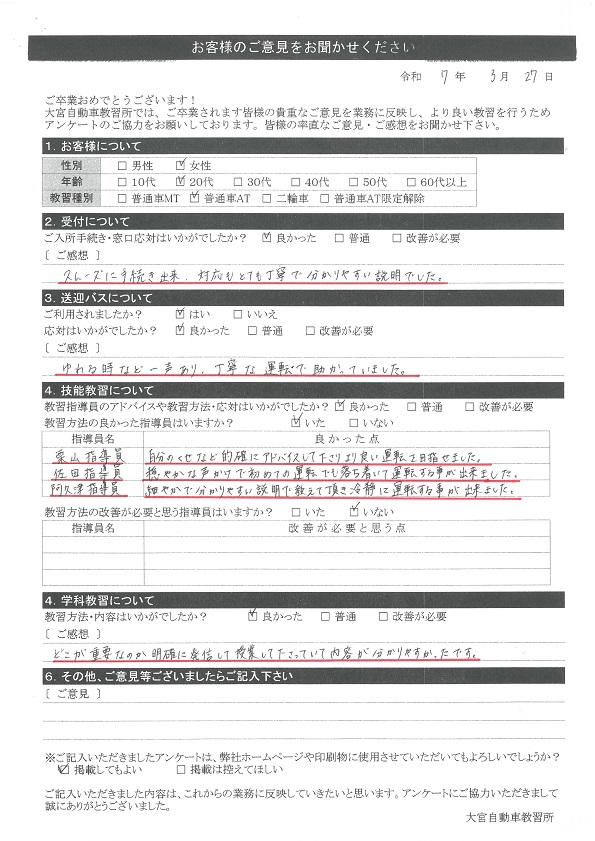 お客様のご意見をお聞かせください
令和 7 年 3 月 27 日
ご卒業おめでとうございます！
大宮自動車教習所では、ご卒業されます皆様の貴重なご意見を業務に反映し、より良い教習を行うため
アンケートのご協力をお願いしております。皆様の率直なご意見・ご感想をお聞かせ下さい。
1. お客様について
性別 □ 男性 ☑ 女性
年齢 □ 10代 ☑ 20代 □ 30代 □ 40代 □ 50代 □ 60代以上
教習種別 □ 普通車MT ☑ 普通車AT □ 二輪車 □ 普通車AT限定解除
2. 受付について
ご入所手続き・窓口応対はいかがでしたか？ ☑ 良かった □ 普通 □ 改善が必要
〔 ご感想 〕
スムーズに手続き出来、対応もとても丁寧で分かりやすい説明でした。
3. 送迎バスについて
ご利用されましたか？ ☑ はい □ いいえ
応対はいかがでしたか？ ☑ 良かった □ 普通 □ 改善が必要
〔 ご感想 〕
ゆれる時など一声あり、丁寧な運転で助かっていました。
4. 技能教習について
教習指導員のアドバイスや教習方法・応対はいかがでしたか？ ☑ 良かった □ 普通 □ 改善が必要
教習方法の良かった指導員はいますか？ ☑ いた □ いない
指導員名 良かった点
栗山指導員 自分のくせなど的確にアドバイスして下さり良い運転を目指せました。
佐田指導員 穏やかな声かけで初めての運転でも落ち着いて運転する事が出来ました。
阿久津指導員 細やかで分かりやすい説明で教えて頂き冷静に運転する事が出来ました。
教習方法の改善が必要と思う指導員はいますか？ □ いた ☑ いない
指導員名 改善が必要と思う点
4. 学科教習について
教習方法・内容はいかがでしたか？ ☑ 良かった □ 普通 □ 改善が必要
〔 ご感想 〕
どこが重要なのか明確に発信して授業して下さっていて内容が分かりやすかったです。
6. その他、ご意見等ございましたらご記入下さい
〔 ご意見 〕
※ご記入いただきましたアンケートは、弊社ホームページや印刷物に使用させていただいてもよろしいでしょうか？
☑ 掲載してもよい □ 掲載は控えてほしい
ご記入いただきました内容は、これからの業務に反映していきたいと思います。アンケートにご協力いただきまして
誠にありがとうございました。
大宮自動車教習所